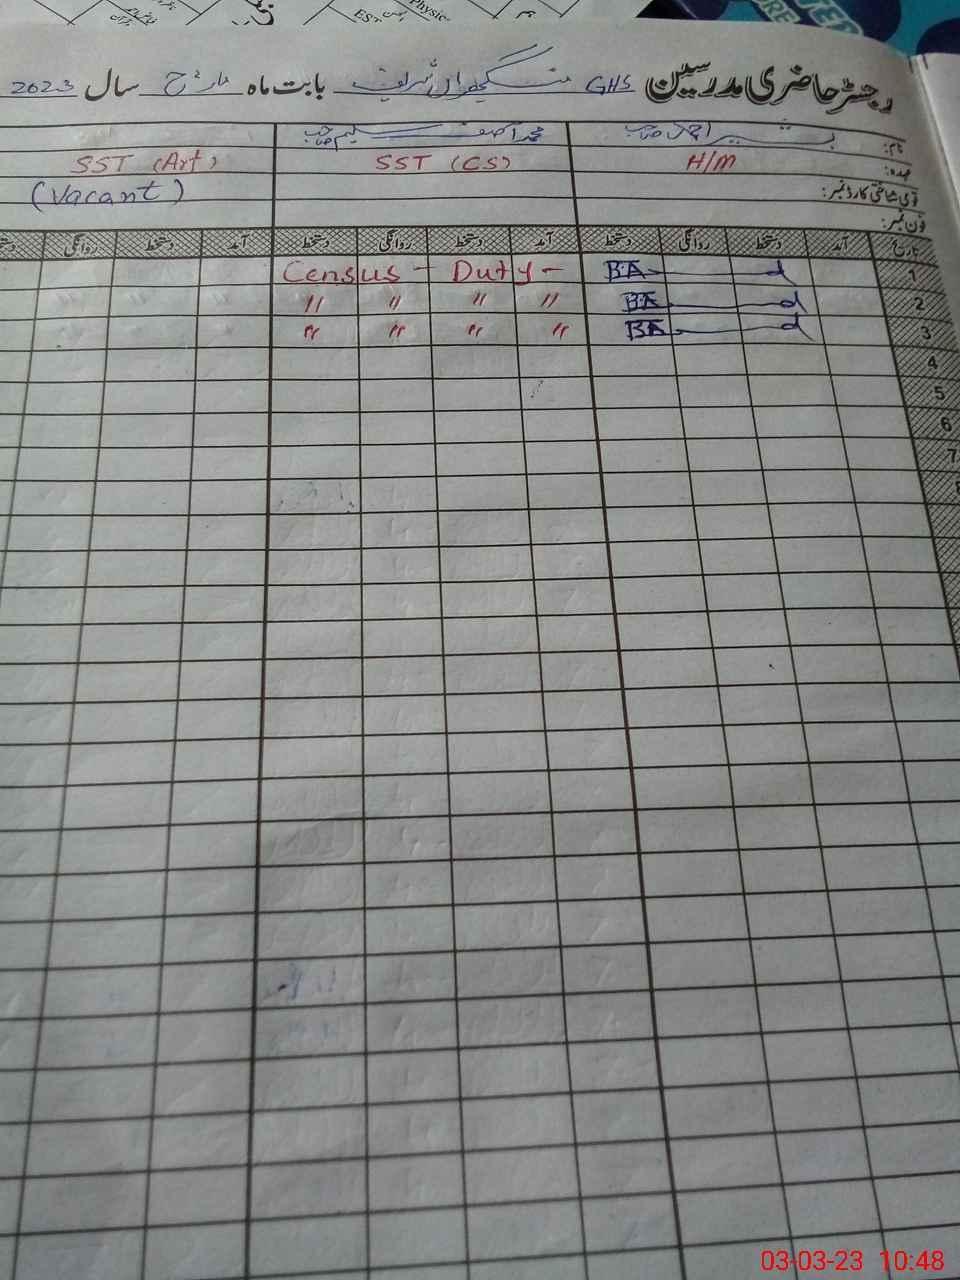 رجسٹر حاضری مدرسین GHS منگھووال شریف بابت ماہ مارچ سال 2023
نام: بشیر احمد صاحب محمد آصف سلیم صاحب
عہدہ: H/M SST (CS) SST (Art)
قومی شناختی کارڈ نمبر: (Vacant)
فون نمبر:
تاریخ آمد دستخط روانگی دستخط آمد دستخط روانگی دستخط آمد دستخط روانگی
1 BA Census - Duty -
2 BA 〃 〃 〃 〃
3 BA 〃 〃 〃 〃
4
5
6
7
03-03-23 10:48